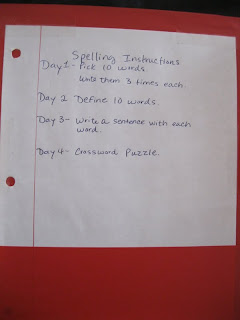 Spelling Instructions
Day 1 - Pick 10 words.
Write them 3 times each.
Day 2 Define 10 words.
Day 3 - Write a sentence with each
word.
Day 4 - Crossword Puzzle.